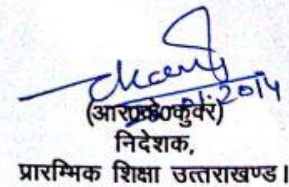 (आर०के०कुंवर)
निदेशक,
प्रारम्भिक शिक्षा उत्तराखण्ड।